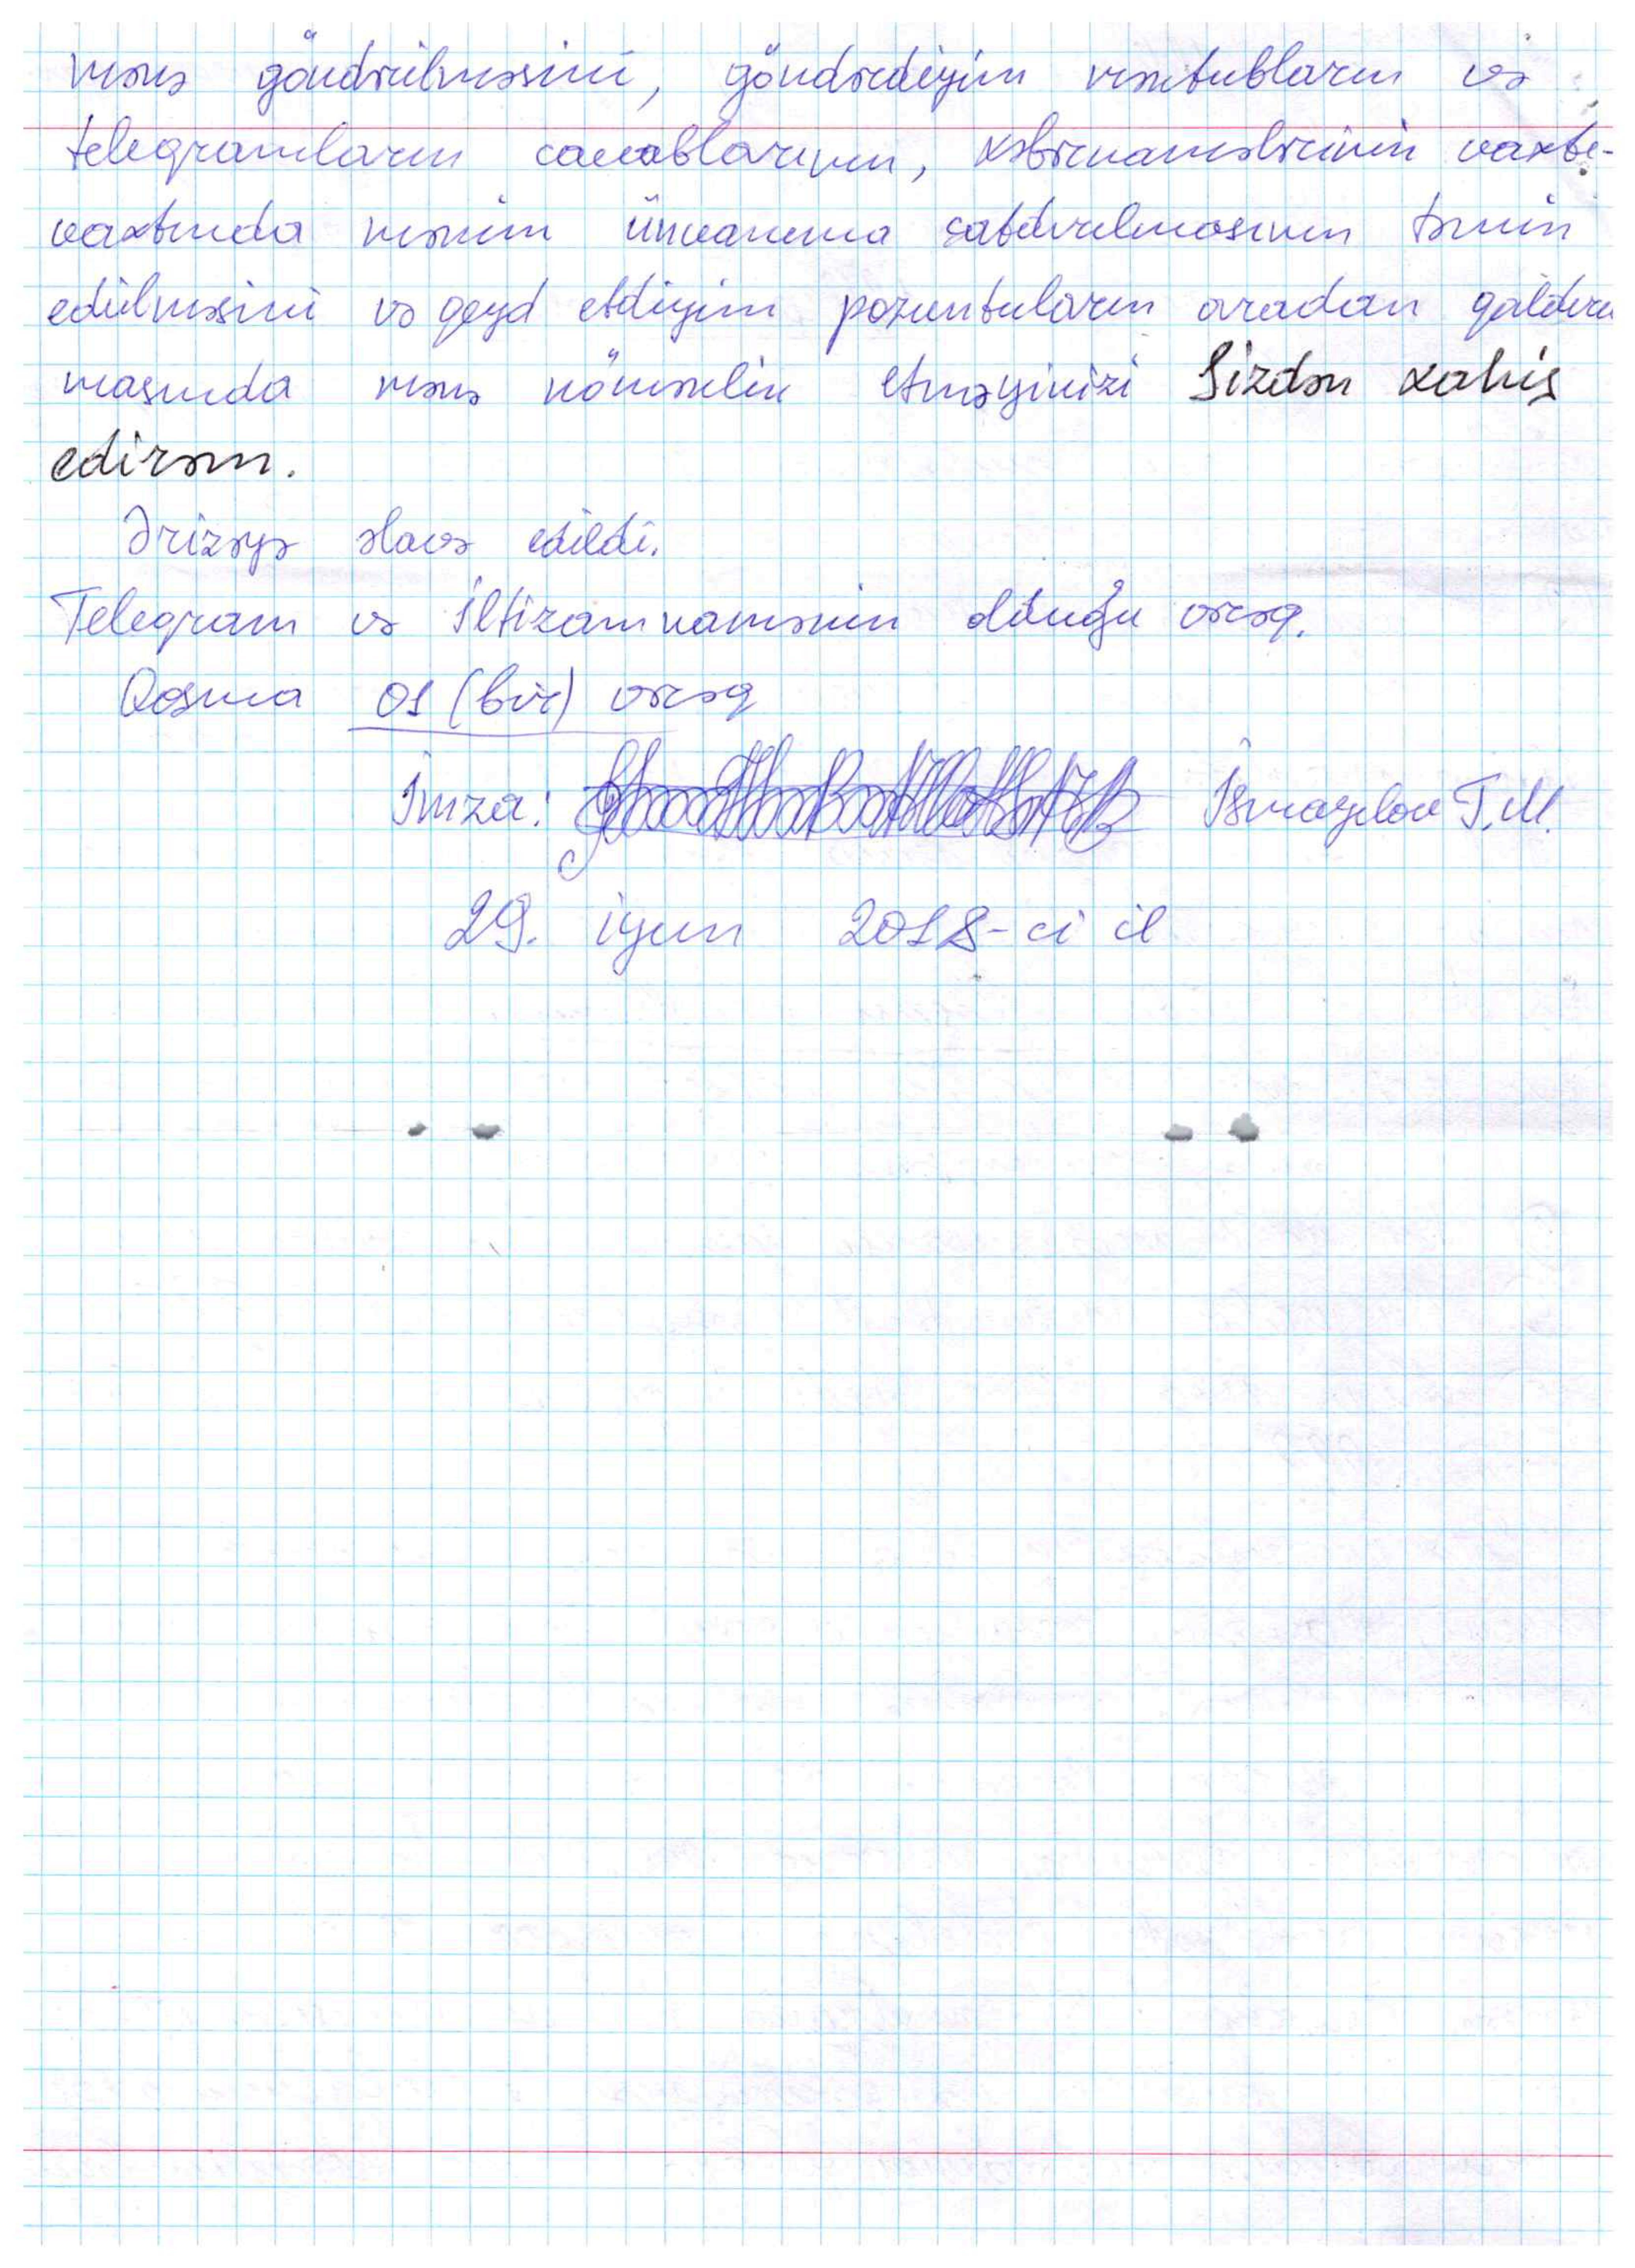 mənə göndərilməsini, göndərdiyim məktubların və
teleqramların cavablarının, xəbərnamələrinin vaxtı-
vaxtında mənim ünvanıma çatdırılmasının təmin
edilməsini və qeyd etdiyim pozuntuların aradan qaldırıl
masında mənə köməklik etməyinizi Sizdən xahiş
edirəm.
Ərizəyə əlavə edildi.
Teleqram və İltizamnamənin olduğu vərəq.
Qoşma 01 (bir) vərəq
İmza: İsmayılov T.M.
29. iyun 2018-ci il